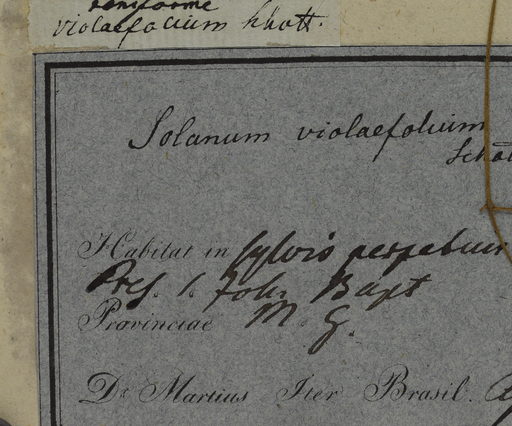 reniforme
violaefolium Schott.
Solanum violaefolium
Schot
Habitat in sylvis perpetuis
Pres. S. Joh. Bapt
Provinciae M. G.
Dr. Martius Iter Brasil.